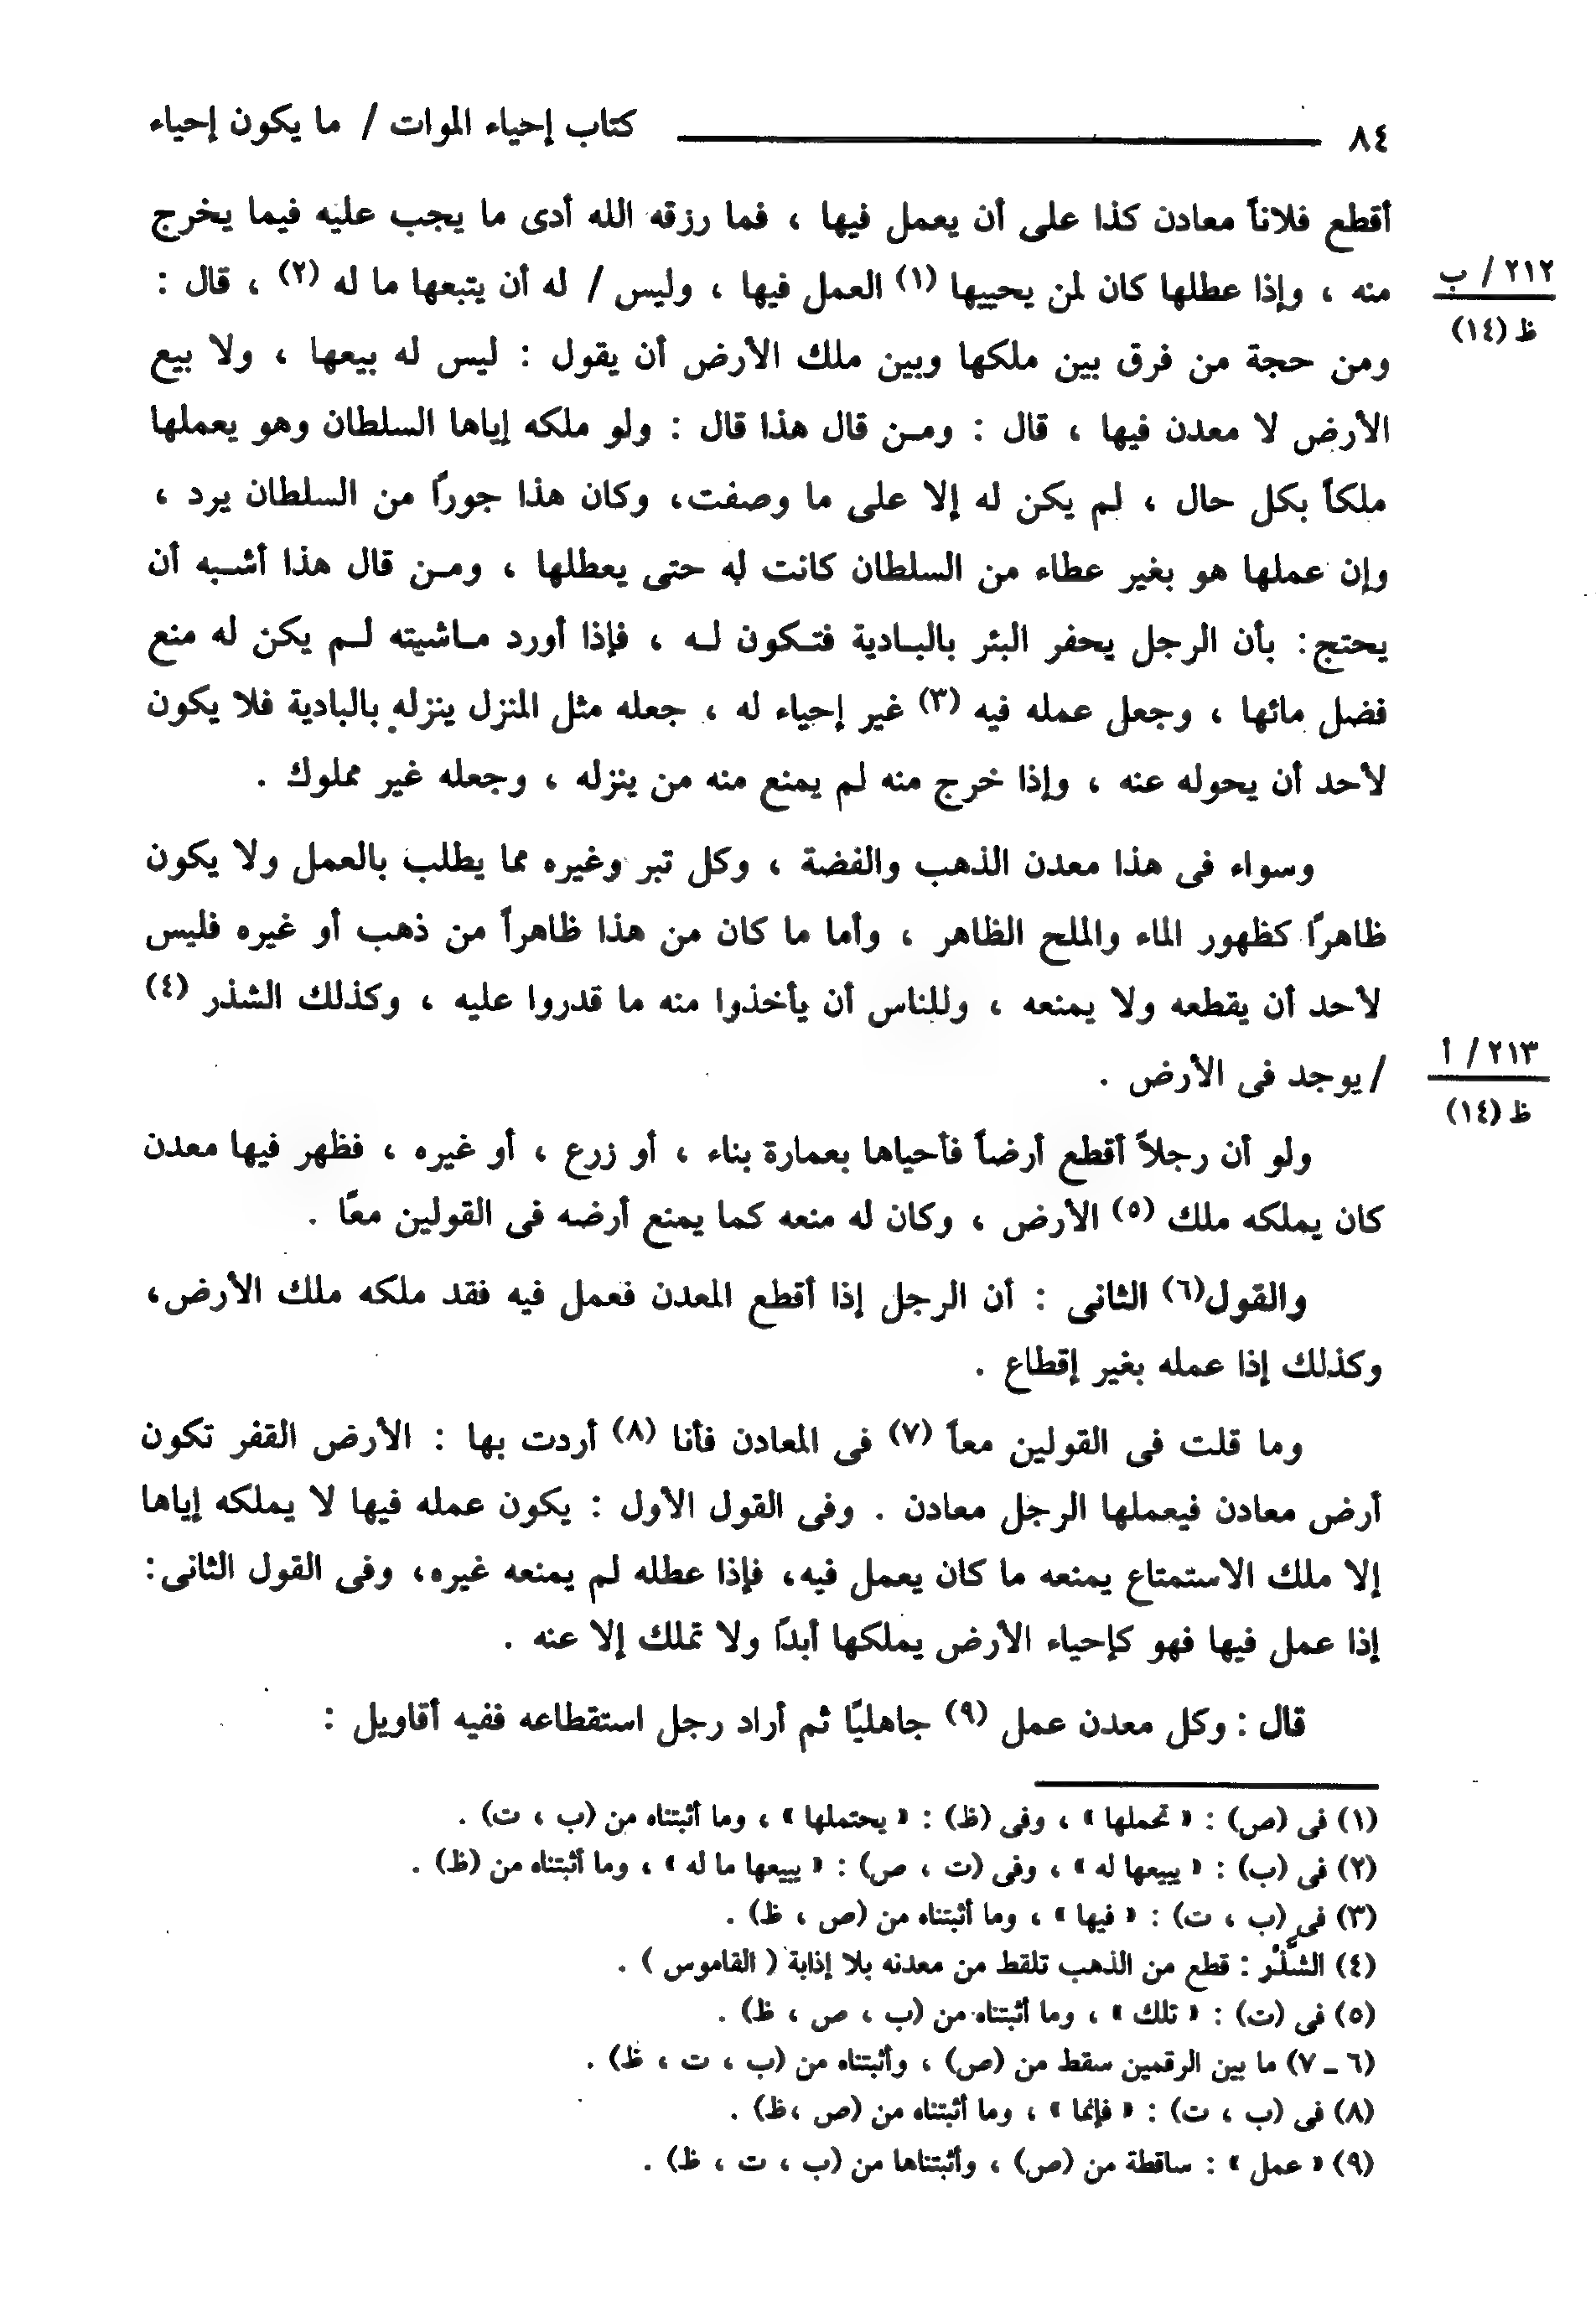 ٨٤ كتاب إحياء الموات / ما يكون إحياء
أقطع فلاناً معادن كذا على أن يعمل فيها ، فما رزقه الله أدى ما يجب عليه فيما يخرج
منه ، وإذا عطلها كان لمن يحييها (١) العمل فيها ، وليس / له أن يتبعها ما له (٢) ، قال :
٢١٢ / ب
ظ (١٤)
ومن حجة من فرق بين ملكها وبين ملك الأرض أن يقول : ليس له بيعها ، ولا بيع
الأرض لا معدن فيها ، قال : ومـن قال هذا قال : ولو ملكه إياها السلطان وهو يعملها
ملكاً بكل حال ، لم يكن له إلا على ما وصفت، وكان هذا جوراً من السلطان يرد ،
وإن عملها هو بغير عطاء من السلطان كانت له حتى يعطلها ، ومـن قال هذا أشـبه أن
يحتج: بأن الرجل يحفر البئر بالبـادية فتـكون لـه ، فإذا أورد مـاشيته لـم يكن له منع
فضل مائها ، وجعل عمله فيه (٣) غير إحياء له ، جعله مثل المنزل ينزله بالبادية فلا يكون
لأحد أن يحوله عنه ، وإذا خرج منه لم يمنع منه من ينزله ، وجعله غير مملوك .
وسواء فى هذا معدن الذهب والفضة ، وكل تبر وغيره مما يطلب بالعمل ولا يكون
ظاهراً كظهور الماء والملح الظاهر ، وأما ما كان من هذا ظاهراً من ذهب أو غيره فليس
لأحد أن يقطعه ولا يمنعه ، وللناس أن يأخذوا منه ما قدروا عليه ، وكذلك الشذر (٤)
/ يوجد فى الأرض .
٢١٣ / أ
ظ (١٤)
ولو أن رجلاً أقطع أرضاً فأحياها بعمارة بناء ، أو زرع ، أو غيره ، فظهر فيها معدن
كان يملكه ملك (٥) الأرض ، وكان له منعه كما يمنع أرضه فى القولين معًا .
والقول(٦) الثانى : أن الرجل إذا أقطع المعدن فعمل فيه فقد ملكه ملك الأرض،
وكذلك إذا عمله بغير إقطاع .
وما قلت فى القولين معاً (٧) فى المعادن فأنا (٨) أردت بها : الأرض القفر تكون
أرض معادن فيعملها الرجل معادن . وفى القول الأول : يكون عمله فيها لا يملكه إياها
إلا ملك الاستمتاع يمنعه ما كان يعمل فيه، فإذا عطله لم يمنعه غيره، وفى القول الثانى:
إذا عمل فيها فهو كإحياء الأرض يملكها أبدًا ولا تملك إلا عنه .
قال : وكل معدن عمل (٩) جاهليًا ثم أراد رجل استقطاعه ففيه أقاويل :
(١) فى (ص) : « تحملها » ، وفى (ظ) : « يحتملها » ، وما أثبتناه من (ب ، ت) .
(٢) فى (ب) : « يبيعها له » ، وفى (ت ، ص) : « يبيعها ما له » ، وما أثبتناه من (ظ) .
(٣) فى (ب ، ت) : « فيها » ، وما أثبتناه من (ص ، ظ) .
(٤) الشَّذْر : قطع من الذهب تلقط من معدنه بلا إذابة ( القاموس ) .
(٥) فى (ت) : « تلك » ، وما أثبتناه من (ب ، ص ، ظ) .
(٦ ـ ٧) ما بين الرقمين سقط من (ص) ، وأثبتناه من (ب ، ت ، ظ) .
(٨) فى (ب ، ت) : « فإنما » ، وما أثبتناه من (ص ،ظ) .
(٩) « عمل » : ساقطة من (ص) ، وأثبتناها من (ب ، ت ، ظ) .